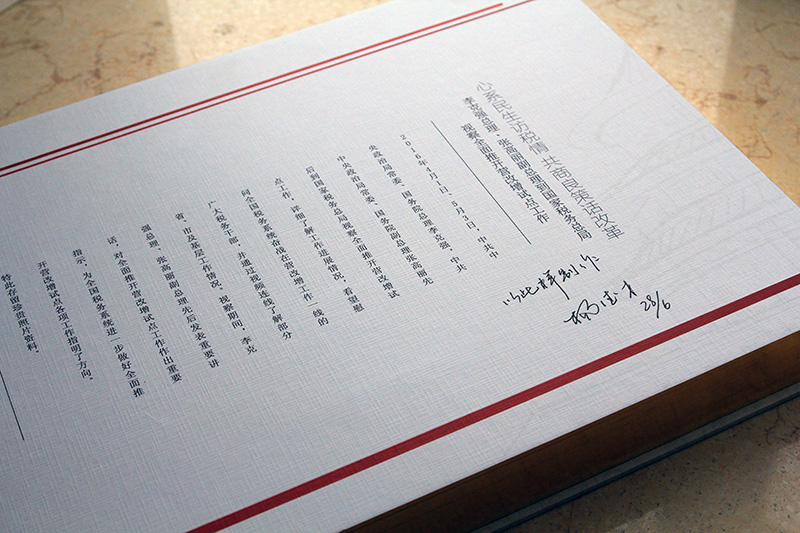 心系民生访税情 共商良策话改革
李克强总理、张高丽副总理到国家税务总局
视察全面推开营改增试点工作
2016年4月1日、5月3日，中共中
央政治局常委、国务院总理李克强，中共
中央政治局常委、国务院副总理张高丽先
后到国家税务总局视察全面推开营改增试
点工作，详细了解工作进展情况，看望慰
问全国税务系统奋战在营改增工作一线的
广大税务干部，并通过视频连线了解部分
省、市及基层工作情况。视察期间，李克
强总理、张高丽副总理先后发表重要讲
话，对全面推开营改增试点工作作出重要
指示，为全国税务系统进一步做好全面推
开营改增试点各项工作指明了方向。
特此存留珍贵照片资料。
以此样制作
28/6